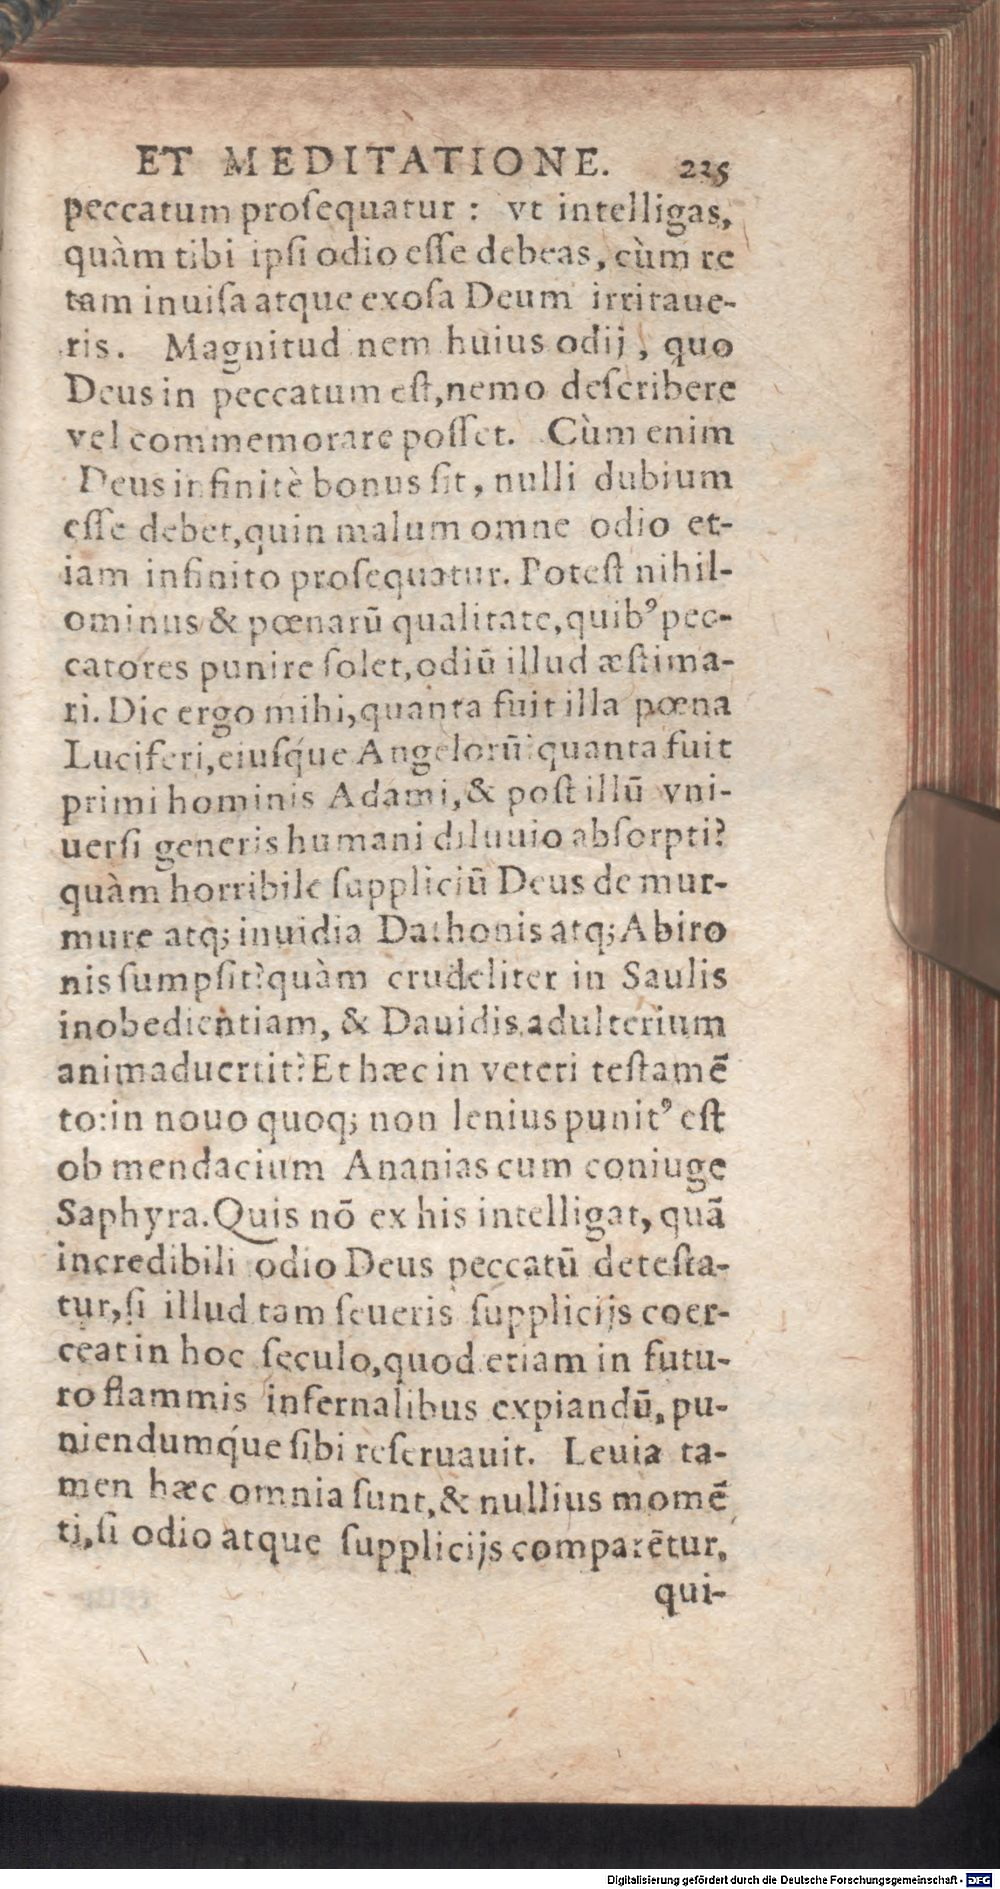 ET MEDITATIONE. 225
peccatum proſequatur: vt intelligas,
quàm tibi ipſi odio eſſe debeas, cùm re
tam inuiſa atque exoſa Deum irritaue-
ris. Magnitud nem huius odij, quo
Deus in peccatum eſt, nemo deſcribere
vel commemorare poſſet. Cùm enim
Deus infinitè bonus ſit, nulli dubium
eſſe debet, quin malum omne odio et-
iam infinito proſequatur. Poteſt nihil-
ominus & pœnarū qualitate, quibꝰ pec-
catores punire ſolet, odiū illud æſtima-
ri. Dic ergo mihi, quanta fuit illa pœna
Luciferi, eiuſq́ue Angelorū? quanta fuit
primi hominis Adami, & poſt illū vni-
uerſi generis humani diluuio abſorpti?
quàm horribile ſuppliciū Deus de mur-
mure atq; inuidia Dathonis atq; Abiro
nis ſumpſit? quàm crudeliter in Saulis
inobedientiam, & Dauidis adulterium
animaduertit? Et hæc in veteri teſtamē
to: in nouo quoq; non lenius punitꝰ eſt
ob mendacium Ananias cum coniuge
Saphyra. Quis nō ex his intelligat, quā
incredibili odio Deus peccatū deteſta-
tur, ſi illud tam ſeueris ſupplicijs coer-
ceat in hoc ſeculo, quod etiam in futu-
ro flammis infernalibus expiandū, pu-
niendumq́ue ſibi reſeruauit. Leuia ta-
men hæc omnia ſunt, & nullius momē
ti, ſi odio atque ſupplicijs comparētur,
qui-
Digitalisierung gefördert durch die Deutsche Forschungsgemeinschaft - DFG